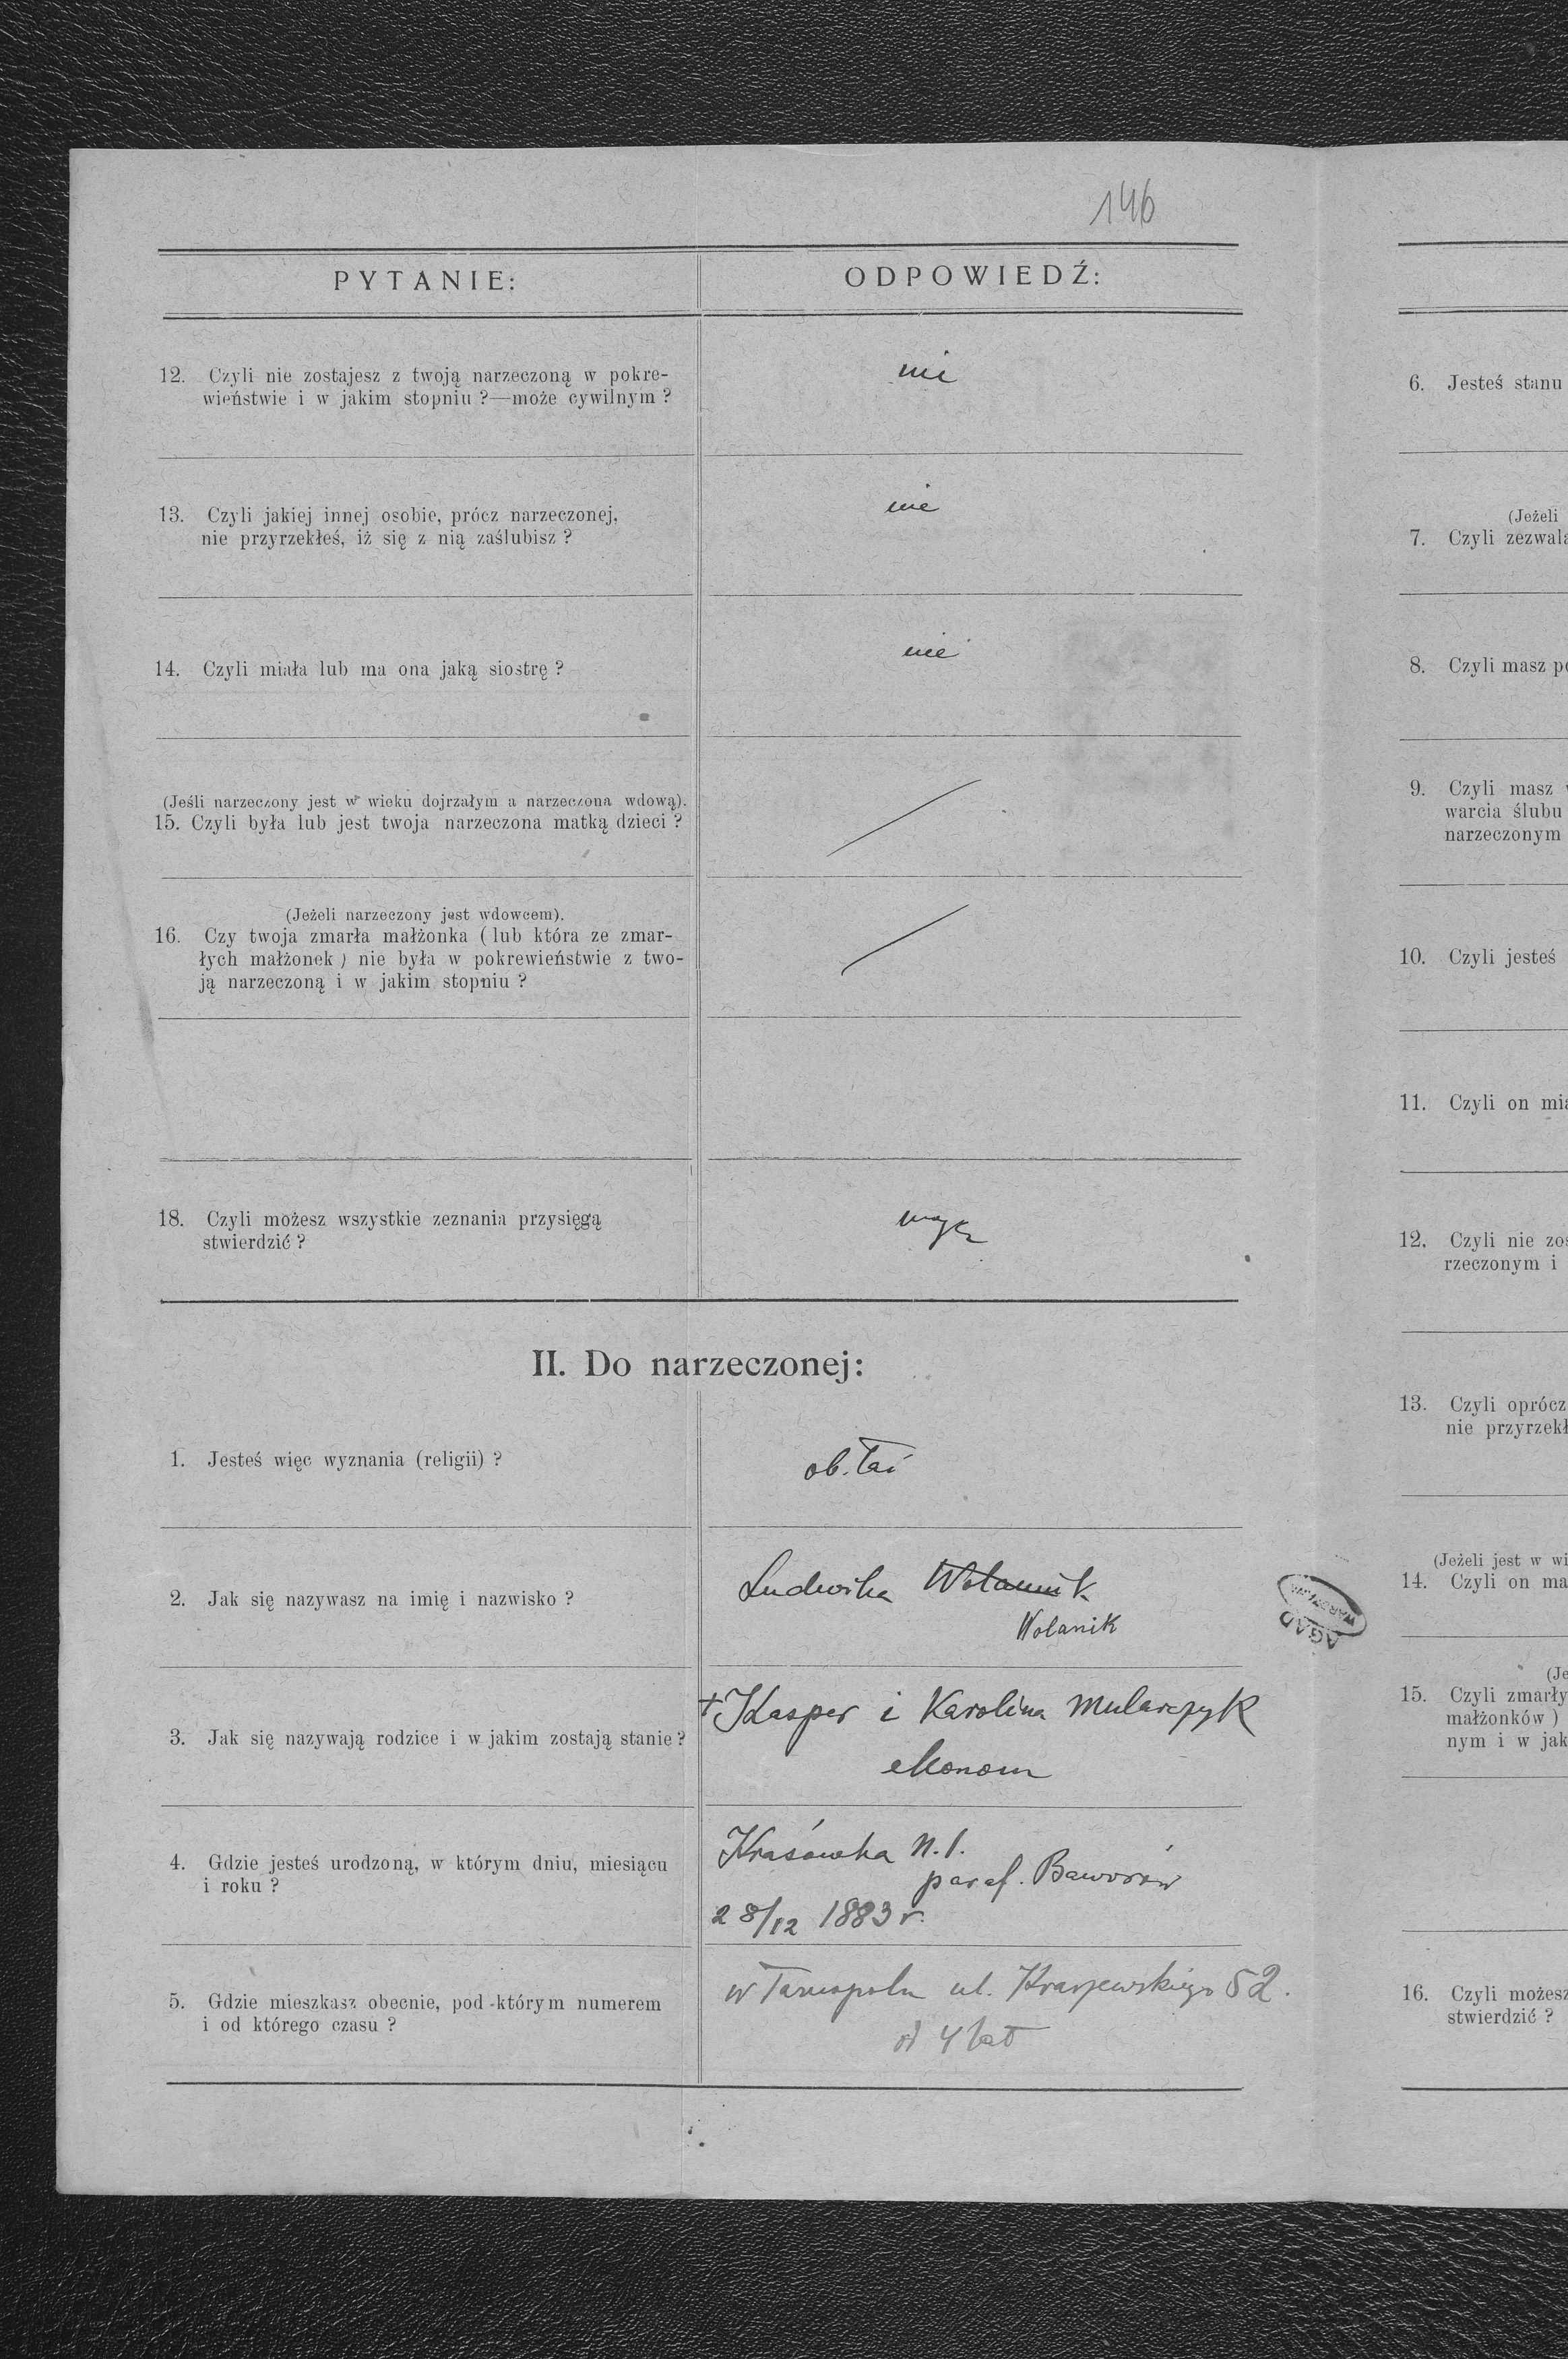 146
PYTANIE:
ODPOWIEDŹ:
12. Czyli nie zostajesz z twoją narzeczoną w pokre-
wieństwie i w jakim stopniu ?—może cywilnym ?
nie
13. Czyli jakiej innej osobie, prócz narzeczonej,
nie przyrzekłeś, iż się z nią zaślubisz ?
nie
14. Czyli miała lub ma ona jaką siostrę ?
nie
(Jeśli narzeczony jest w wieku dojrzałym a narzeczona wdową).
15. Czyli była lub jest twoja narzeczona matką dzieci ?
(Jeżeli narzeczony jest wdowcem).
16. Czy twoja zmarła małżonka ( lub która ze zmar-
łych małżonek ) nie była w pokrewieństwie z two-
ją narzeczoną i w jakim stopniu ?
18. Czyli możesz wszystkie zeznania przysięgą
stwierdzić ?
II. Do narzeczonej:
1. Jesteś więc wyznania (religii) ?
ob. łać
2. Jak się nazywasz na imię i nazwisko ?
Ludwika
Wolanik
3. Jak się nazywają rodzice i w jakim zostają stanie ?
+ Kasper i Karolina Mularczyk
ekonom
4. Gdzie jesteś urodzoną, w którym dniu, miesiącu
i roku ?
Krasówka N. 1.
paraf. Baworów
28/12 1883 r.
5. Gdzie mieszkasz obecnie, pod którym numerem
i od którego czasu ?
w Tarnopolu ul. Kraszewskiego 52.
od 4 lat
AGAD
WARSZAWA
6. Jesteś stanu
(Jeżeli
7. Czyli zezwala
8. Czyli masz po
9. Czyli masz w
warcia ślubu
narzeczonym
10. Czyli jesteś
11. Czyli on mia
12. Czyli nie zos
rzeczonym i
13. Czyli oprócz
nie przyrzekł
(Jeżeli jest w wi
14. Czyli on ma
(Je
15. Czyli zmarły
małżonków )
nym i w jak
16. Czyli możesz
stwierdzić ?